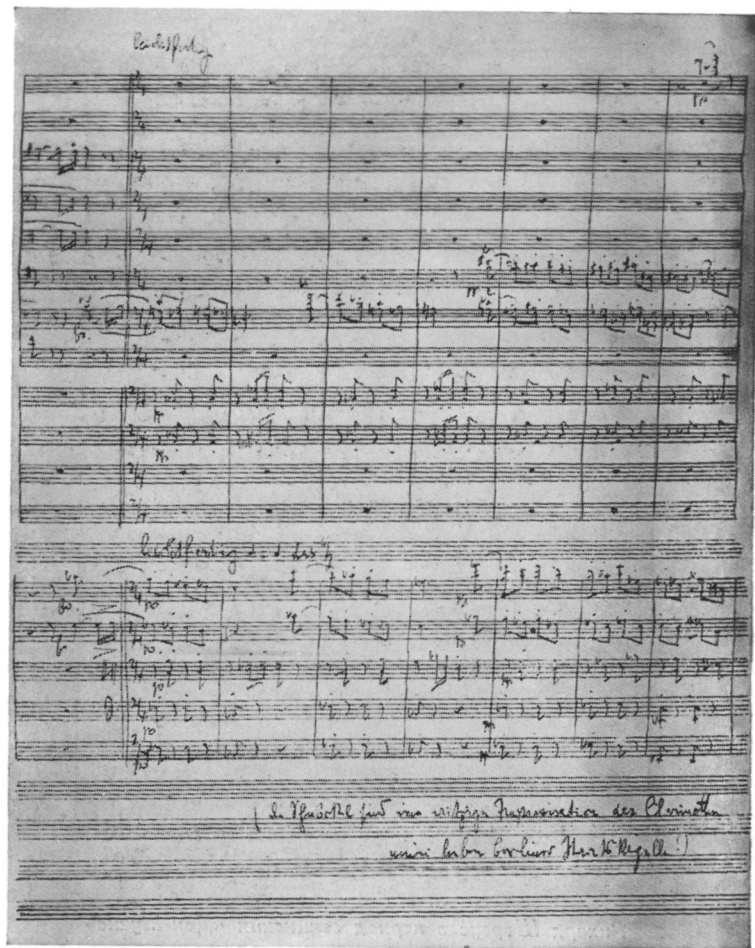 leichtfertig
leichtfertig
(Die Schnörkel sind eine witzige Improvisation der Clarinetten
meiner lieben berliner StaatsKapelle!)